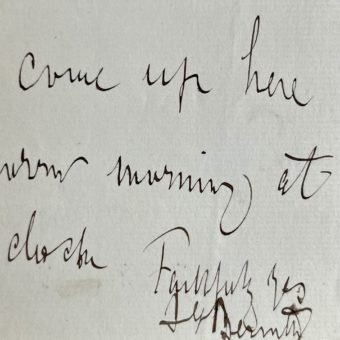 come up here
orrow morning at
clock
Faithfully yrs